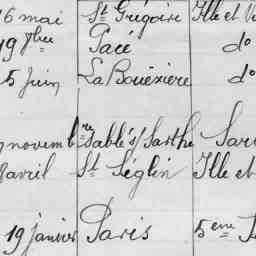 16 mai St Grégoire Ille et Vi
19 7bre Pacé do
5 Juin La Bouëxiere do
novembre Sablé s/ Sarthe Sar
avril St Séglin Ille et
19 janvier Paris 5eme